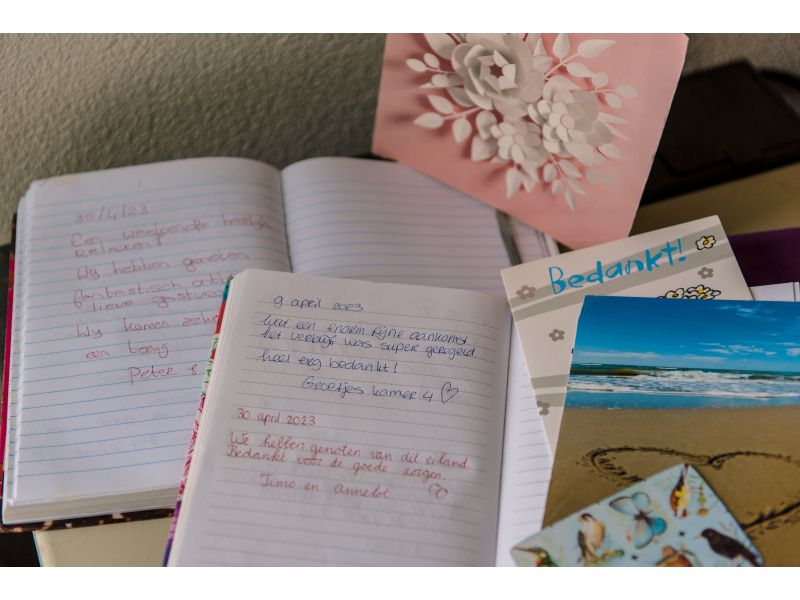 30/4/23
Een weekendje heerlijk
relaxen!
Wij hebben genoten
fantastisch
lieve
Wij komen zeker
een terug
Peter &
9 april 2023
Wat een enorm fijne aankomst
het verblijf was super geregeld
heel erg bedankt!
Groetjes kamer 4
30 april 2023
We hebben genoten van dit eiland
Bedankt voor de goede zorgen.
Timo en Annelot
Bedankt!